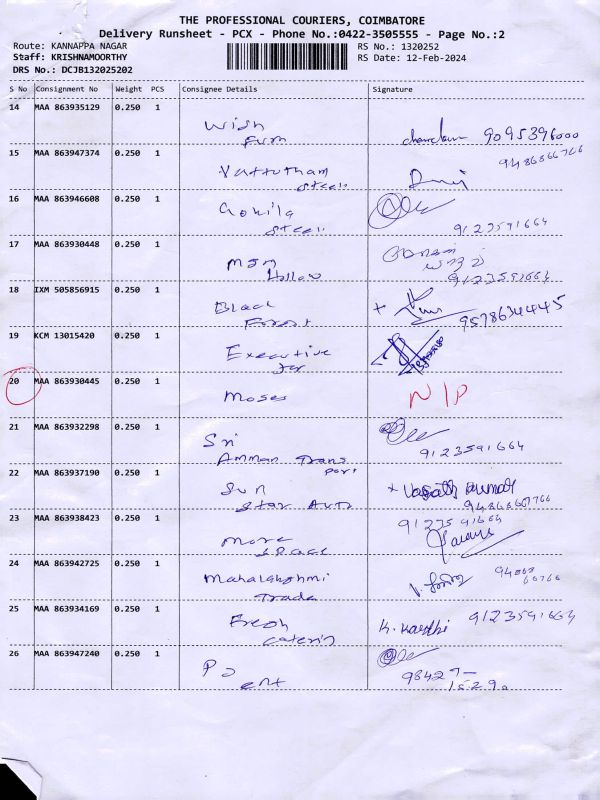 THE PROFESSIONAL COURIERS, COIMBATORE
Delivery Runsheet - PCX - Phone No.:0422-3505555 - Page No.:2
Route: KANNAPPA NAGAR
RS No.: 1320252
Staff: KRISHNAMOORTHY
RS Date: 12-Feb-2024
DRS No.: DCJB132025202
S No Consignment No Weight PCS Consignee Details Signature
14 MAA 863935129 0.250 1
Wish
Furn
9095396000
15 MAA 863947374 0.250 1
Steels
16 MAA 863946608 0.250 1
Gokila
Steels
9123591664
17 MAA 863930448 0.250 1
MSM
9123591664
18 IXM 505856915 0.250 1
Black
Forest
9578634445
19 KCM 13015420 0.250 1
Executive
20 MAA 863930445 0.250 1
Moses
N/P
21 MAA 863932298 0.250 1
Sri
Amman Trans
port
9123591664
22 MAA 863937190 0.250 1
Sun
Star Auto
23 MAA 863938423 0.250 1
9123591664
More
space
24 MAA 863942725 0.250 1
Mahalakshmi
Trade
25 MAA 863934169 0.250 1
Fresh
caterin
K. Karthi 9123591664
26 MAA 863947240 0.250 1
PD
ent
98427-
15290